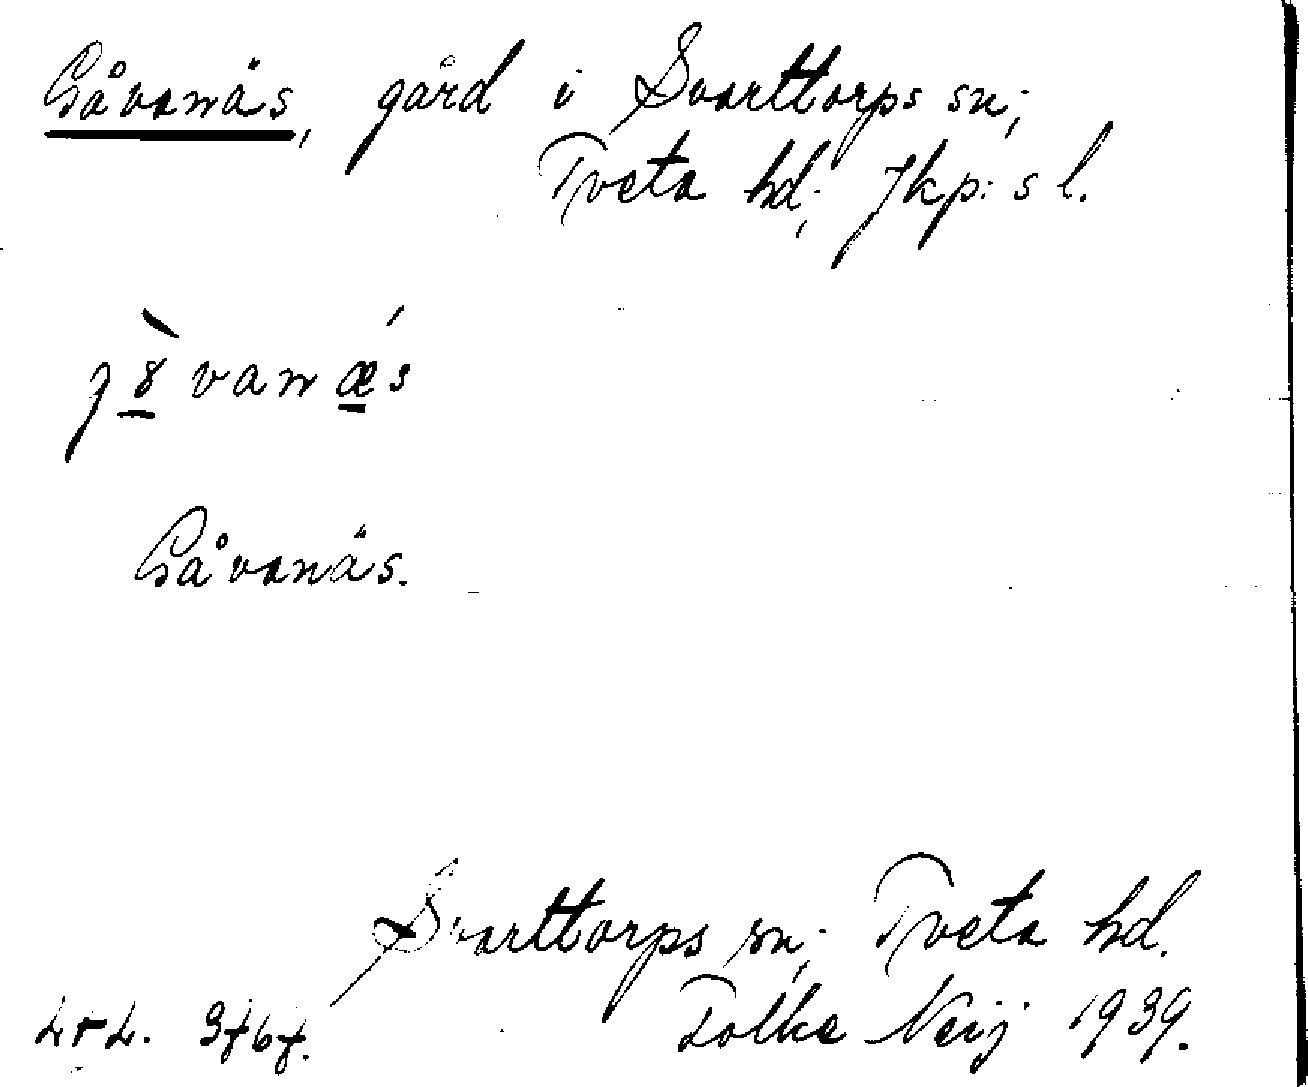 Gåvanäs, gård i Svarttorps sn;
Tveta hd; Jkp: s l.
g ȣ̀ v a n ǽ s
Gåvanäs.
Svarttorps sn; Tveta hd.
Folke Neij 1939.